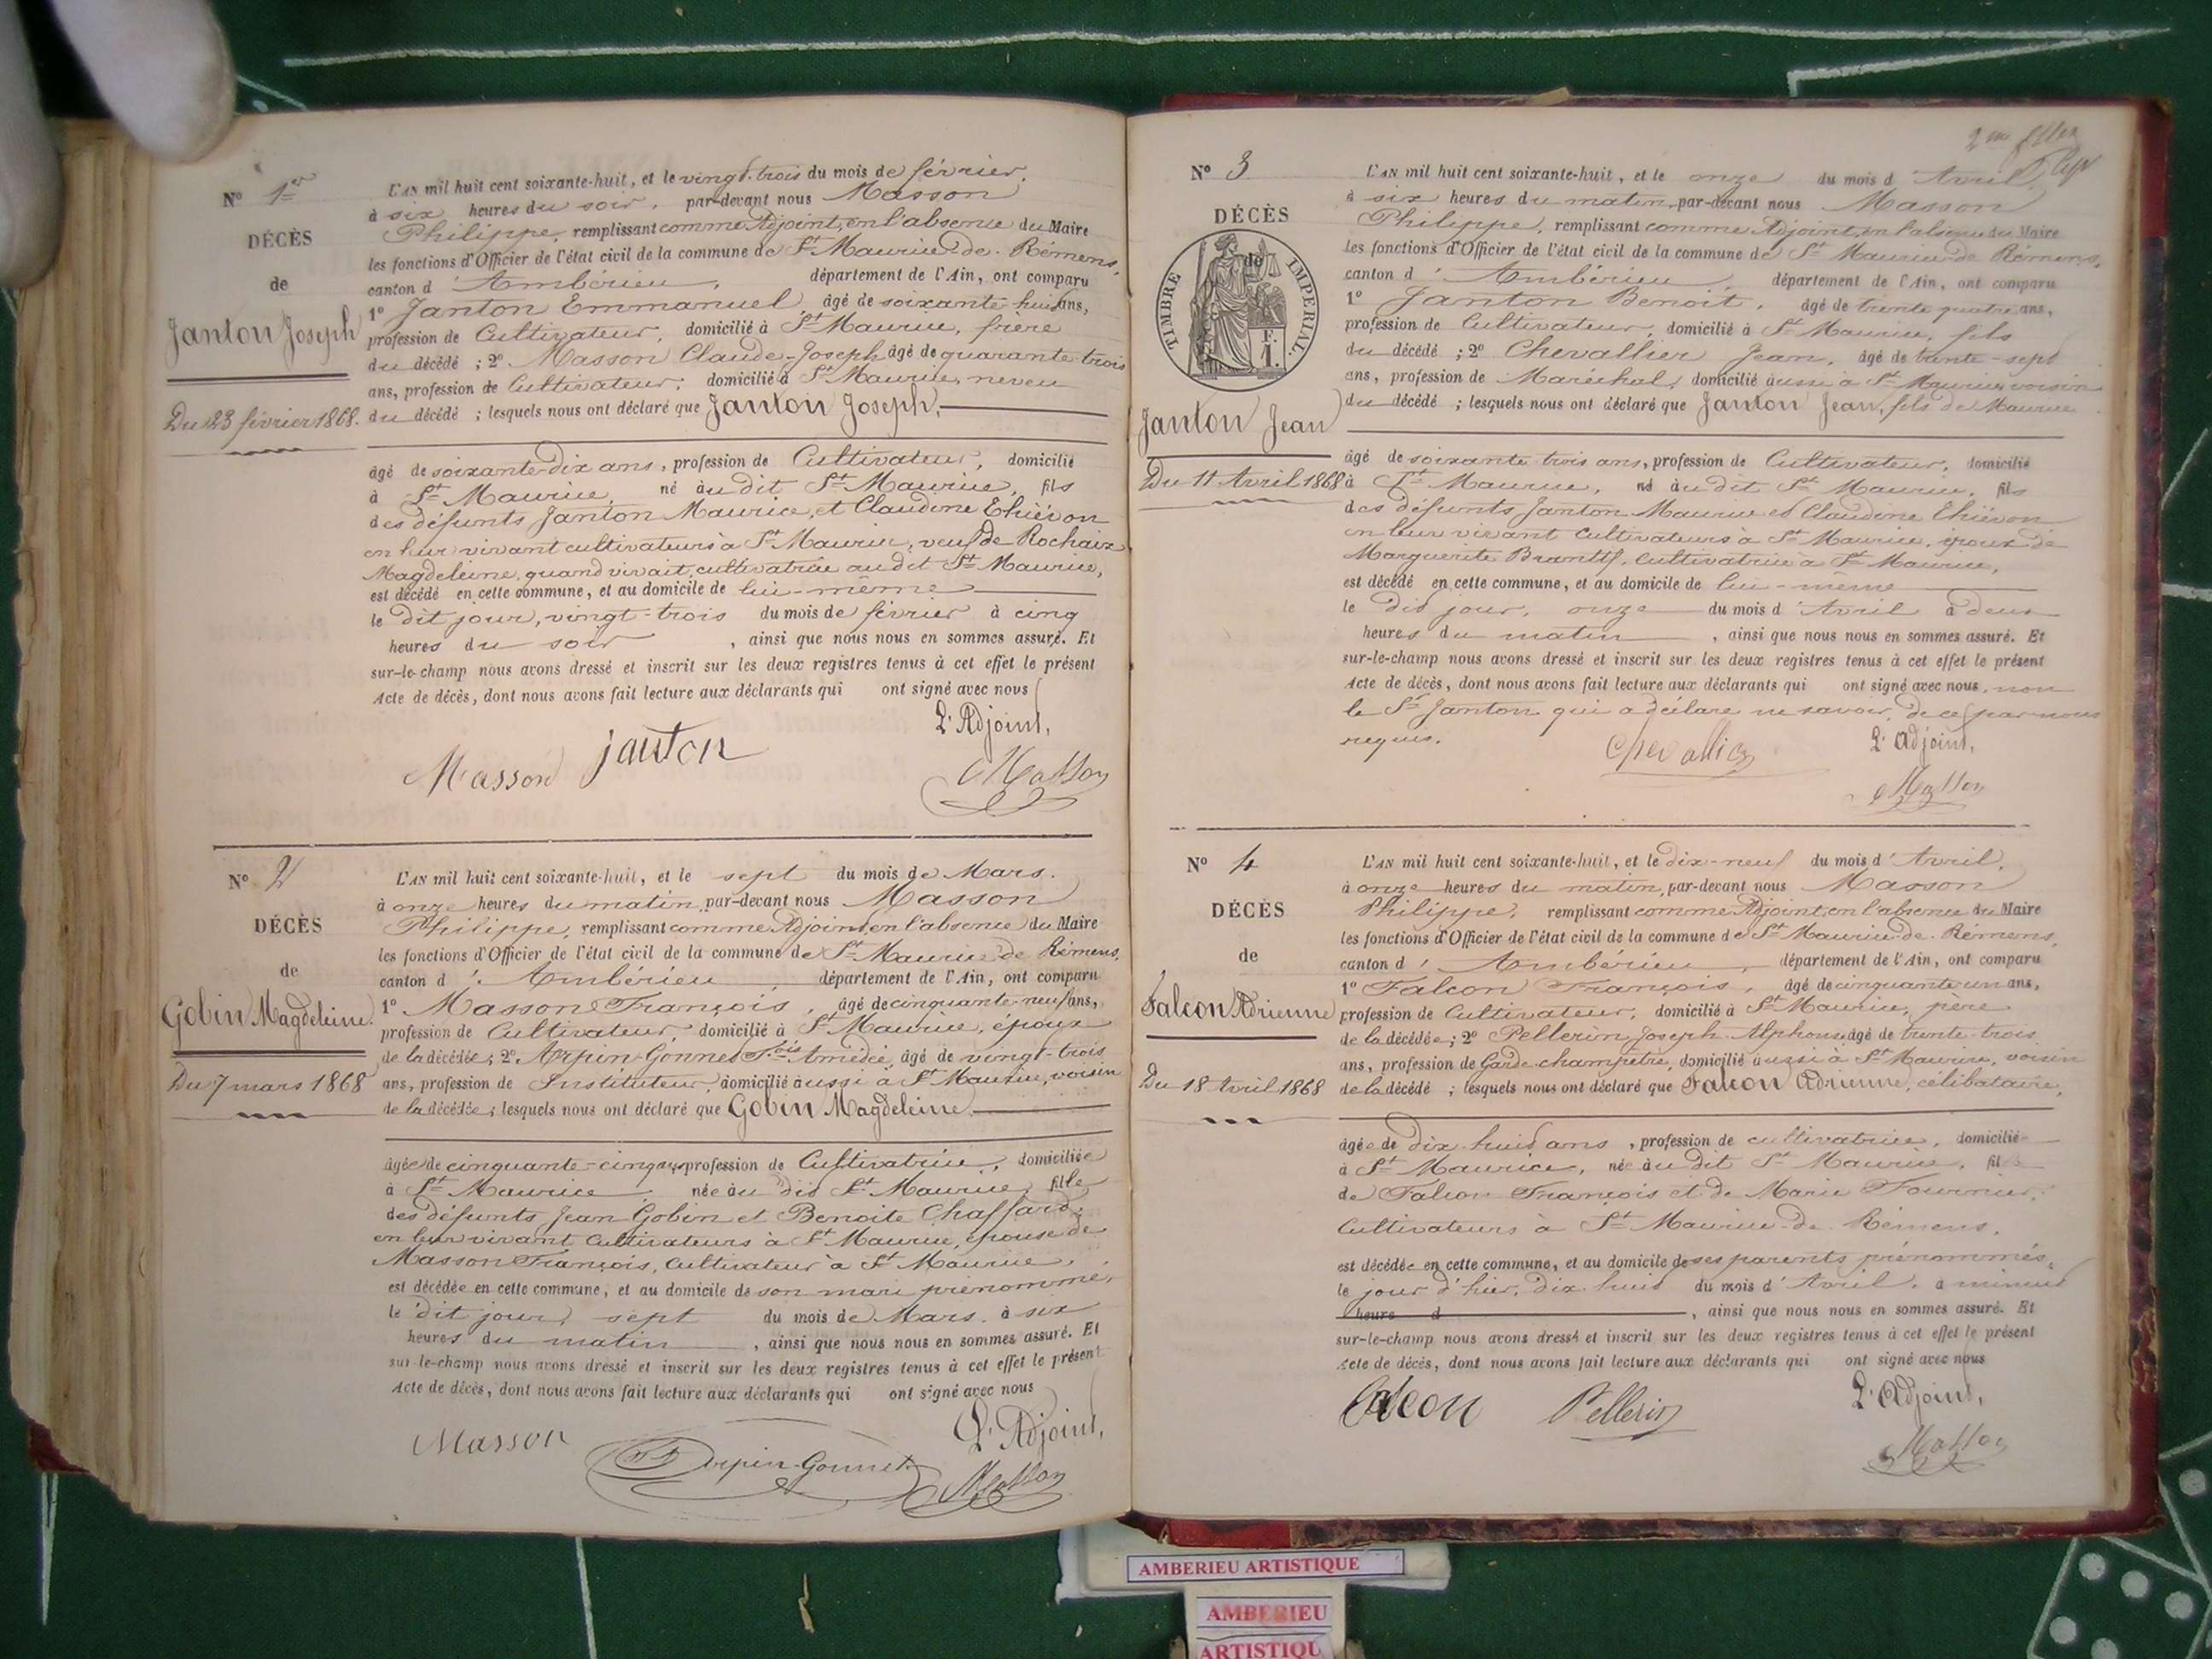 N° 1er
DÉCÈS
de
Janton Joseph
Du 23 février 1868.
L'AN mil huit cent soixante-huit, et le vingt-trois du mois de février.
à six heures du soir, par-devant nous Masson
Philippe, remplissant comme Adjoint, en l'absence du Maire
les fonctions d'Officier de l'état civil de la commune de St Maurice-de-Rémens,
canton d'Ambérieu, département de l'Ain, ont comparu
1° Janton Emmanuel, âgé de soixante-huit ans,
profession de Cultivateur, domicilié à St Maurice, frère
du décédé ; 2° Masson Claude-Joseph âgé de quarante-trois
ans, profession de Cultivateur, domicilié à St Maurice, neveu
du décédé ; lesquels nous ont déclaré que Janton Joseph,
âgé de soixante-dix ans, profession de Cultivateur, domicilié
à St Maurice, né au dit St Maurice, fils
des défunts Janton Maurice, et Claudine Thiévon
en leur vivant cultivateurs à St Maurice, veuf de Rochaix
Magdeleine, quand vivait, cultivatrice au dit St Maurice,
est décédé en cette commune, et au domicile de lui-même
le dit jour, vingt-trois du mois de février à cinq
heures du soir, ainsi que nous nous en sommes assuré. Et
sur-le-champ nous avons dressé et inscrit sur les deux registres tenus à cet effet le présent
Acte de décès, dont nous avons fait lecture aux déclarants qui ont signé avec nous
L'Adjoint,
Masson janton Masson
N° 2
DÉCÈS
de
Gobin Magdeleine.
Du 7 mars 1868
L'AN mil huit cent soixante-huit, et le sept du mois de Mars.
à onze heures du matin, par-devant nous Masson
Philippe, remplissant comme Adjoint en l'absence du Maire
les fonctions d'Officier de l'état civil de la commune de St Maurice de Rémens,
canton d'Ambérieu, département de l'Ain, ont comparu
1° Masson François, âgé de cinquante-neuf ans,
profession de Cultivateur, domicilié à St Maurice, époux
de la décédée ; 2° Arpin-Gonnet Fois Amédée, âgé de vingt-trois
ans, profession de Instituteur, domicilié aussi à St Maurice, voisin
de la décédée ; lesquels nous ont déclaré que Gobin Magdeleine.
âgée de cinquante-cinq ans, profession de Cultivatrice, domiciliée
à St Maurice, née au dit St Maurice, fille
des défunts Jean Gobin et Benoite Chaffard,
en leur vivant Cultivateurs à St Maurice, épouse de
Masson François, Cultivateur à St Maurice,
est décédée en cette commune, et au domicile de son mari prénommé,
le dit jour, sept du mois de Mars. à six
heures du matin, ainsi que nous nous en sommes assuré. Et
sur-le-champ nous avons dressé et inscrit sur les deux registres tenus à cet effet le présent
Acte de décès, dont nous avons fait lecture aux déclarants qui ont signé avec nous
L'Adjoint,
Masson Arpin-Gonnet Masson
N° 3
DÉCÈS
de
TIMBRE IMPERIAL.
1 F.
Janton Jean
Du 11 Avril 1868
L'AN mil huit cent soixante-huit, et le onze du mois d'Avril
à six heures du matin, par-devant nous Masson
Philippe, remplissant comme Adjoint, en l'absence du Maire
les fonctions d'Officier de l'état civil de la commune de St Maurice de Rémens,
canton d'Ambérieu, département de l'Ain, ont comparu
1° Janton Benoit, âgé de trente quatre ans,
profession de Cultivateur, domicilié à St Maurice, fils
du décédé ; 2° Chevallier Jean, âgé de trente-sept
ans, profession de Maréchal, domicilié aussi à St Maurice, voisin
du décédé ; lesquels nous ont déclaré que Janton Jean, fils de Maurice
âgé de soixante trois ans, profession de Cultivateur, domicilié
à St Maurice, né au dit St Maurice, fils
des défunts Janton Maurice et Claudine Thiévon
en leur vivant Cultivateurs à St Maurice, époux de
Marguerite, cultivatrice à St Maurice,
est décédé en cette commune, et au domicile de lui-même
le dit jour, onze du mois d'Avril à deux
heures du matin, ainsi que nous nous en sommes assuré. Et
sur-le-champ nous avons dressé et inscrit sur les deux registres tenus à cet effet le présent
Acte de décès, dont nous avons fait lecture aux déclarants qui ont signé avec nous, non
le Sr Janton qui a déclaré ne savoir, de ce par nous
requis.
L'adjoint,
Chevallier Masson
N° 4
DÉCÈS
de
Falcon Adrienne
Du 18 Avril 1868
L'AN mil huit cent soixante-huit, et le dix-neuf du mois d'Avril,
à onze heures du matin, par-devant nous Masson
Philippe, remplissant comme Adjoint, en l'absence du Maire
les fonctions d'Officier de l'état civil de la commune de St Maurice-de-Rémens,
canton d'Ambérieu, département de l'Ain, ont comparu
1° Falcon François, âgé de cinquante un ans,
profession de Cultivateur, domicilié à St Maurice, père
de la décédée ; 2° Pellerin Joseph-Alphonse, âgé de trente-trois
ans, profession de Garde-champêtre, domicilié aussi à St Maurice, voisin
de la décédé ; lesquels nous ont déclaré que Falcon Adrienne, célibataire,
âgée de dix-huit ans, profession de cultivatrice, domicilié
à St Maurice, née au dit St Maurice, fil
de Falcon François et de Marie Fournier,
Cultivateurs à St Maurice-de-Rémens.
est décédée en cette commune, et au domicile de ses parents prénommés,
le jour d'hier, dix-huit du mois d'Avril, à minuit
heure d, ainsi que nous nous en sommes assuré. Et
sur-le-champ nous avons dressé et inscrit sur les deux registres tenus à cet effet le présent
Acte de décès, dont nous avons fait lecture aux déclarants qui ont signé avec nous
L'Adjoint,
Falcon Pellerin Masson
AMBERIEU ARTISTIQUE
AMBERIEU
ARTISTIQU